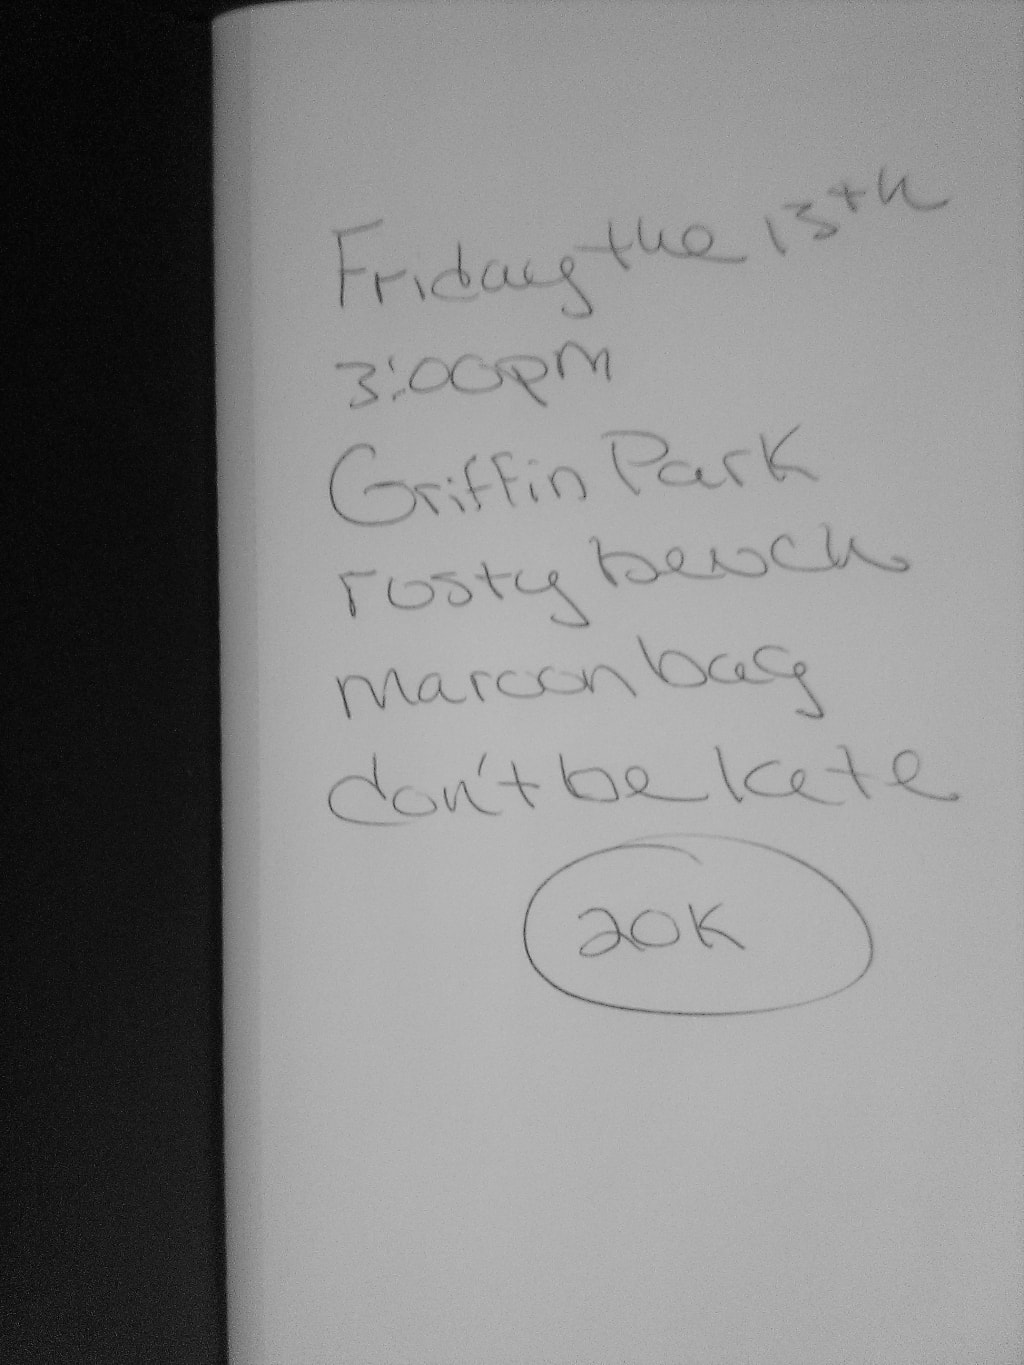 Friday the 13th
3:00pm
Griffin Park
rusty bench
maroon bag
don't be late
20K